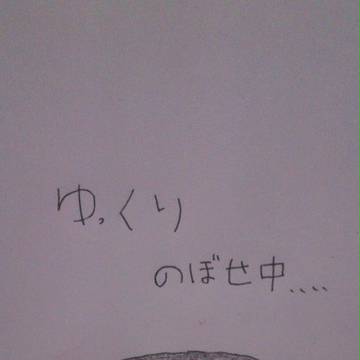 ゆっくり
のぼせ中....